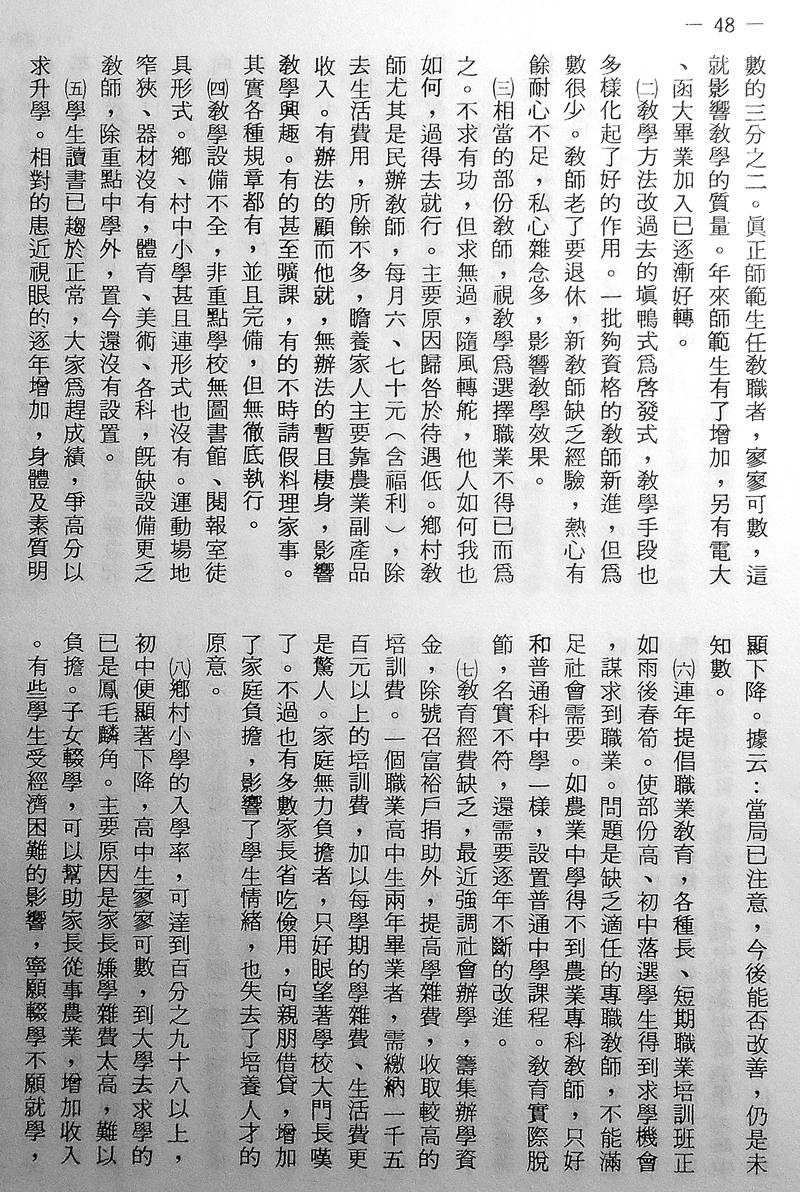 — 48 —
數的三分之二。眞正師範生任敎職者，寥寥可數，這
就影響敎學的質量。年來師範生有了增加，另有電大
、函大畢業加入已逐漸好轉。
㈡敎學方法改過去的塡鴨式爲啓發式，敎學手段也
多樣化起了好的作用。一批夠資格的敎師新進，但爲
數很少。敎師老了要退休，新敎師缺乏經驗，熱心有
餘耐心不足，私心雜念多，影響敎學效果。
㈢相當的部份敎師，視敎學爲選擇職業不得已而爲
之。不求有功，但求無過，隨風轉舵，他人如何我也
如何，過得去就行。主要原因歸咎於待遇低。鄉村敎
師尤其是民辦敎師，每月六、七十元（含福利），除
去生活費用，所餘不多，瞻養家人主要靠農業副產品
收入。有辦法的顧而他就，無辦法的暫且棲身，影響
敎學興趣。有的甚至曠課，有的不時請假料理家事。
其實各種規章都有，並且完備，但無徹底執行。
㈣敎學設備不全，非重點學校無圖書館、閱報室徒
具形式。鄉、村中小學甚且連形式也沒有。運動場地
窄狹、器材沒有，體育、美術、各科，旣缺設備更乏
敎師，除重點中學外，置今還沒有設置。
㈤學生讀書已趨於正常，大家爲趕成績，爭高分以
求升學。相對的患近視眼的逐年增加，身體及素質明
顯下降。據云：當局已注意，今後能否改善，仍是未
知數。
㈥連年提倡職業敎育，各種長、短期職業培訓班正
如雨後春筍。使部份高、初中落選學生得到求學機會
，謀求到職業。問題是缺乏適任的專職敎師，不能滿
足社會需要。如農業中學得不到農業專科敎師，只好
和普通科中學一樣，設置普通中學課程。敎育實際脫
節，名實不符，還需要逐年不斷的改進。
㈦敎育經費缺乏，最近強調社會辦學，籌集辦學資
金，除號召富裕戶捐助外，提高學雜費，收取較高的
培訓費。一個職業高中生兩年畢業者，需繳納一千五
百元以上的培訓費，加以每學期的學雜費、生活費更
是驚人。家庭無力負擔者，只好眼望著學校大門長嘆
了。不過也有多數家長省吃儉用，向親朋借貸，增加
了家庭負擔，影響了學生情緒，也失去了培養人才的
原意。
㈧鄉村小學的入學率，可達到百分之九十八以上，
初中便顯著下降，高中生寥寥可數，到大學去求學的
已是鳳毛麟角。主要原因是家長嫌學雜費太高，難以
負擔。子女輟學，可以幫助家長從事農業，增加收入
。有些學生受經濟困難的影響，寧願輟學不願就學，